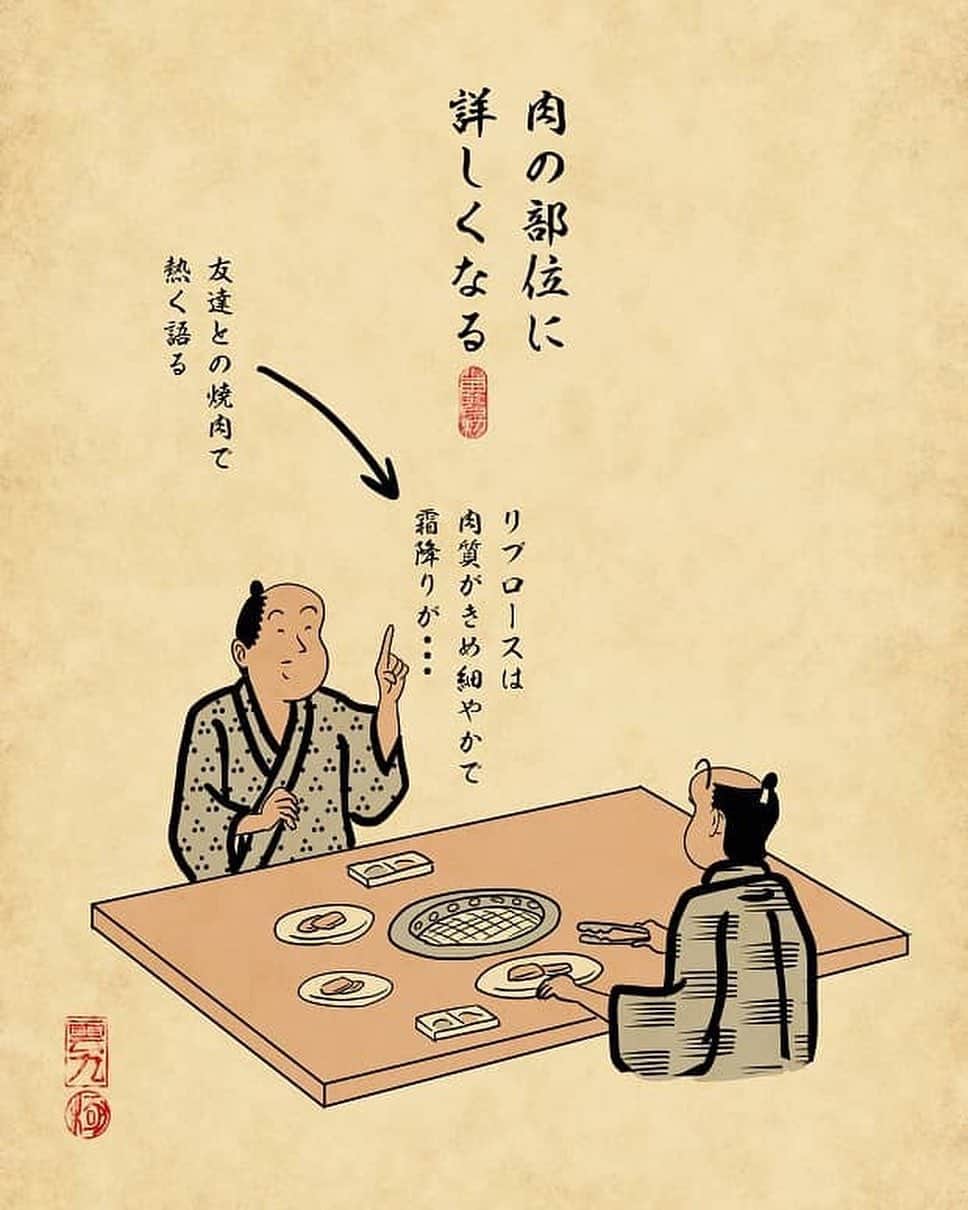 肉の部位に
詳しくなる
友達との焼肉で
熱く語る
リブロースは
肉質がきめ細やかで
霜降りが・・・